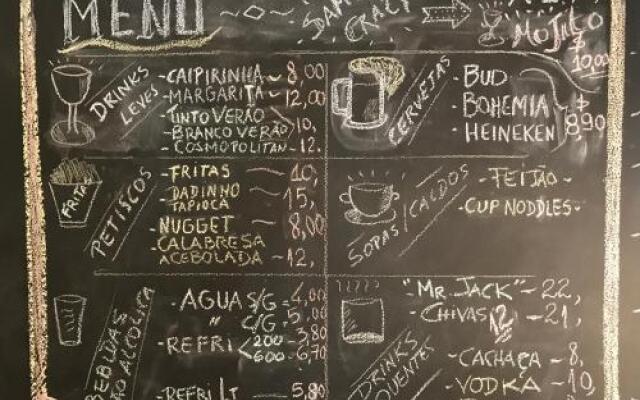 MENU
CRAZY
MOJITO
$
10,00
DRINKS
LEVES
- CAIPIRINHA ~ 8,00
- MARGARITA ~ 12,00
- TINTO VERÃO
- BRANCO VERÃO 10,
- COSMOPOLITAN - 12.
CERVEJAS
- BUD
- BOHEMIA - $
- HEINEKEN 8,90
FRITAS
PETISCOS
- FRITAS
- DADINHO 15,
TAPIOCA
- NUGGET — 8,00
- CALABRESA
ACEBOLADA - 12,
SOPAS/CALDOS
- FEIJÃO -
- CUP NODDLES -
BEBIDAS
ÃO ALCOLICA
- AGUA S/G = 4,00
" C/G - 5,00
- REFRI < 200 - 3,80
600 - 6,70
- REFRI LT - 5,80
DRINKS
QUENTES
- "MR. JACK" - 22,
- CHIVAS 12 - 21,
- CACHAÇA - 8,
- VODKA - 10,